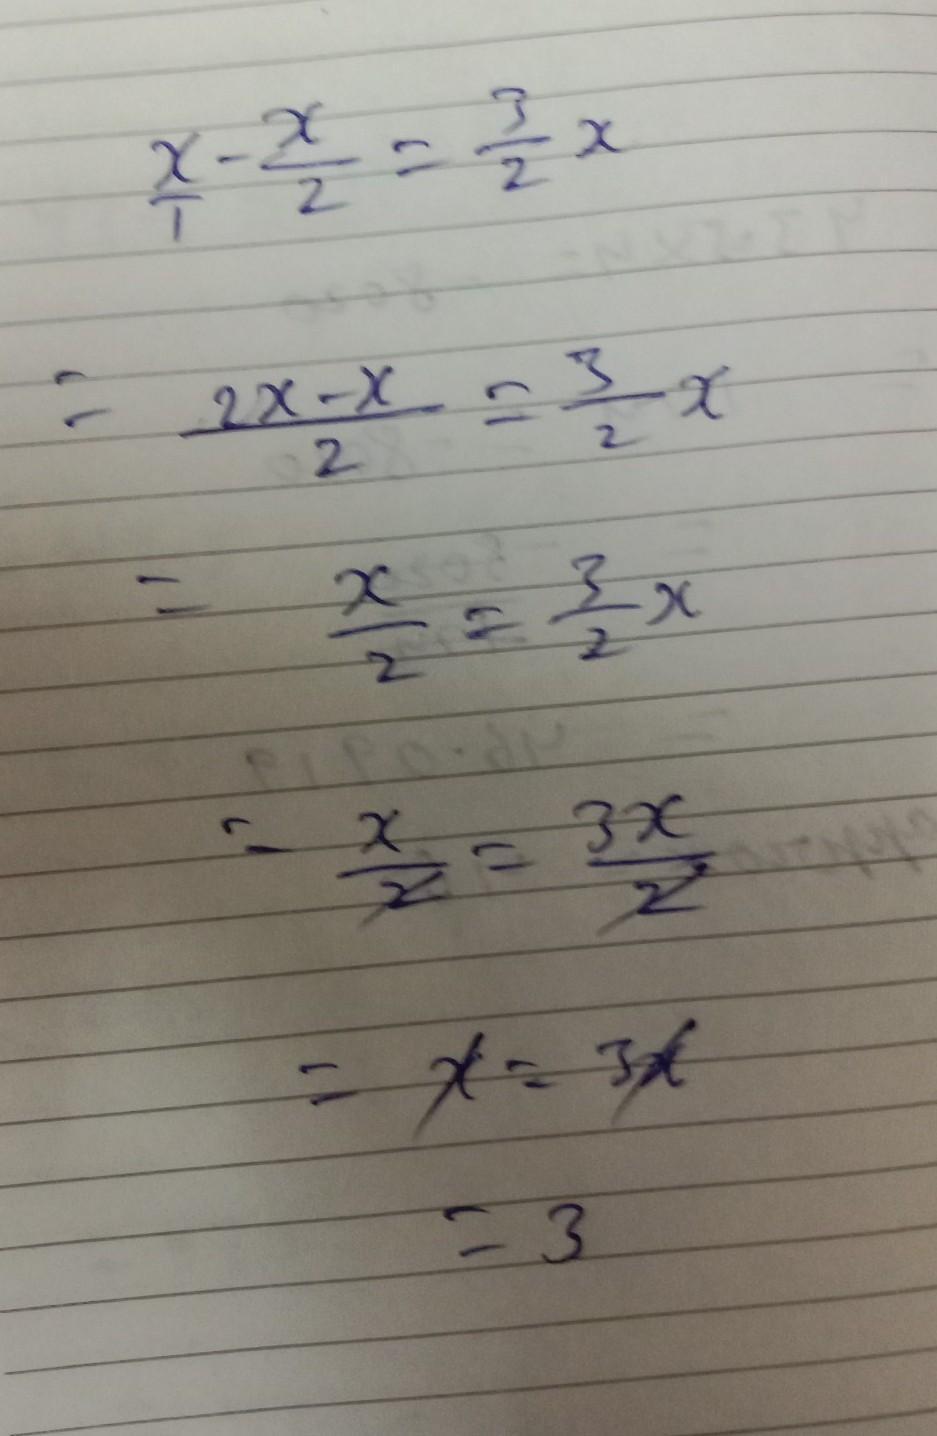 x/1 - x/2 = 3/2 x
= 2x-x/2 = 3/2 x
= x/2 = 3/2 x
= x/2 = 3x/2
= x = 3x
= 3